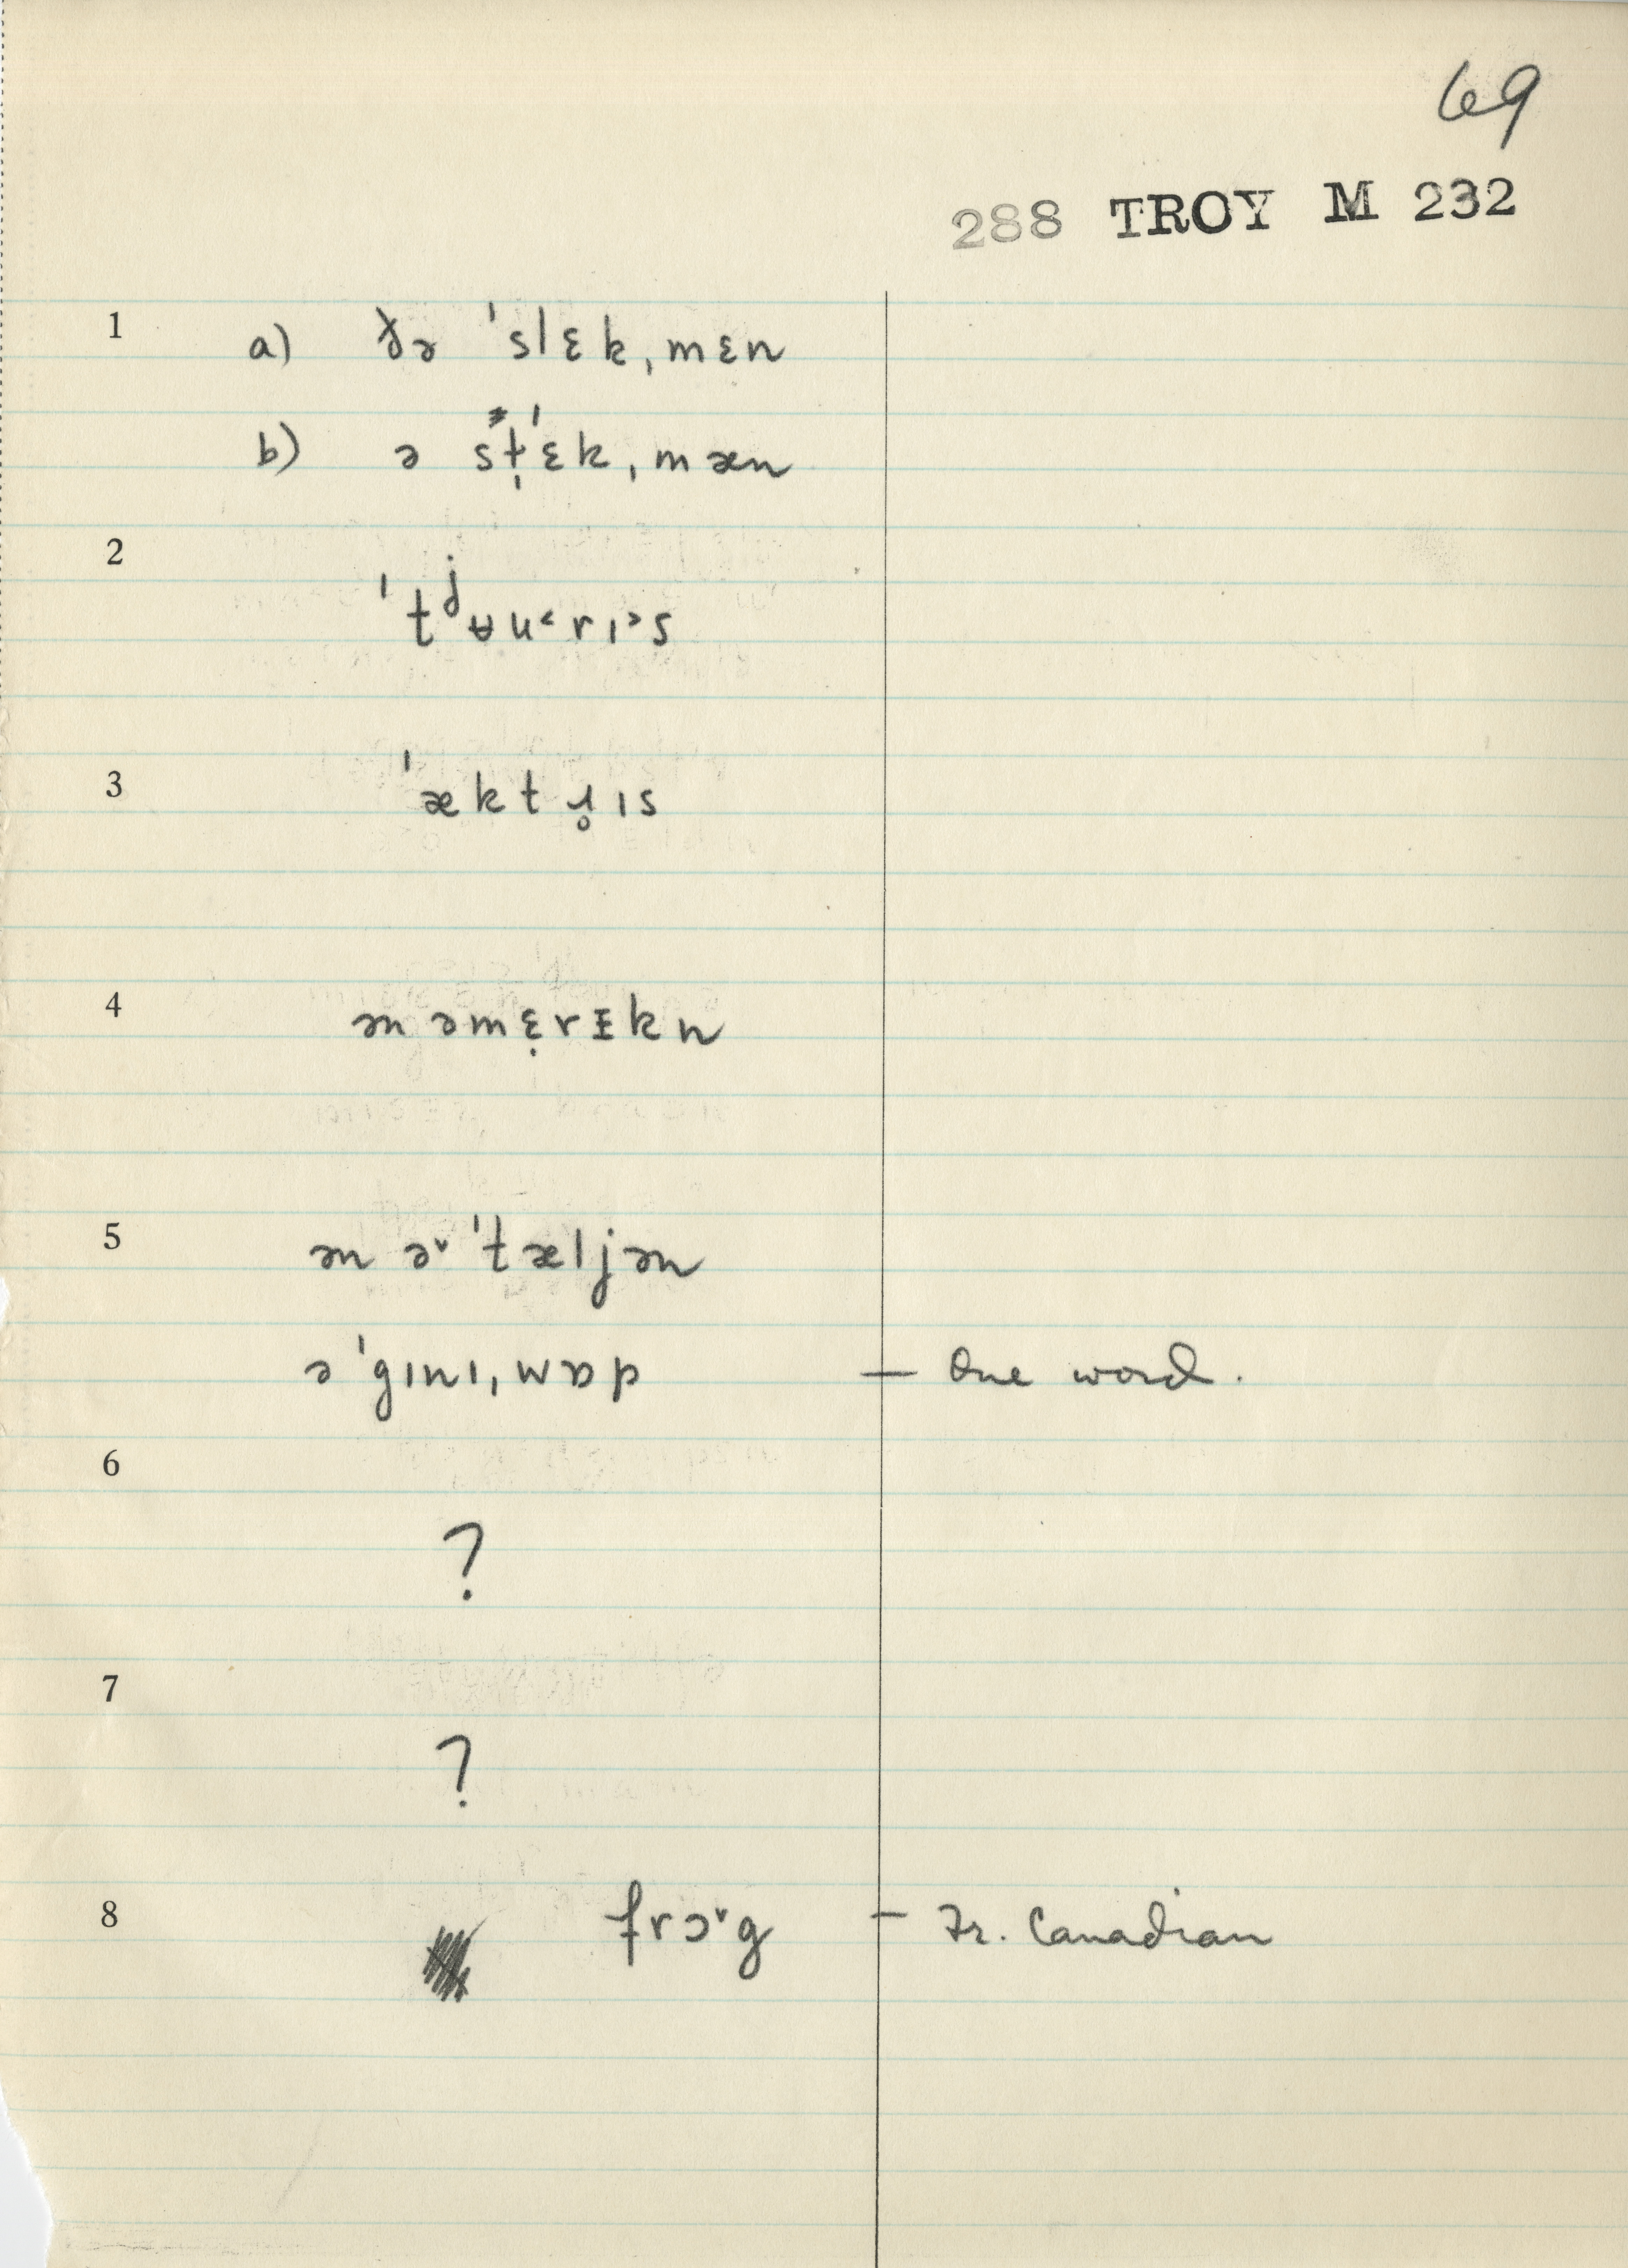 69
288 TROY M 232
1 a) ðə ˈslɛkˌmɛn
b) ə st̩ˈɛkˌmæn
2
ˈtʲʉu˂rɪ˃s
3 ˈæktɹ̥ɪs
4 ən əmɛ̣rɪkn
5 ən ə˅ ˈtæljən
ə ˈgɪnɪˌwɒp — One word.
6
?
7
?
8 frɔ˅g — Fr. Canadian